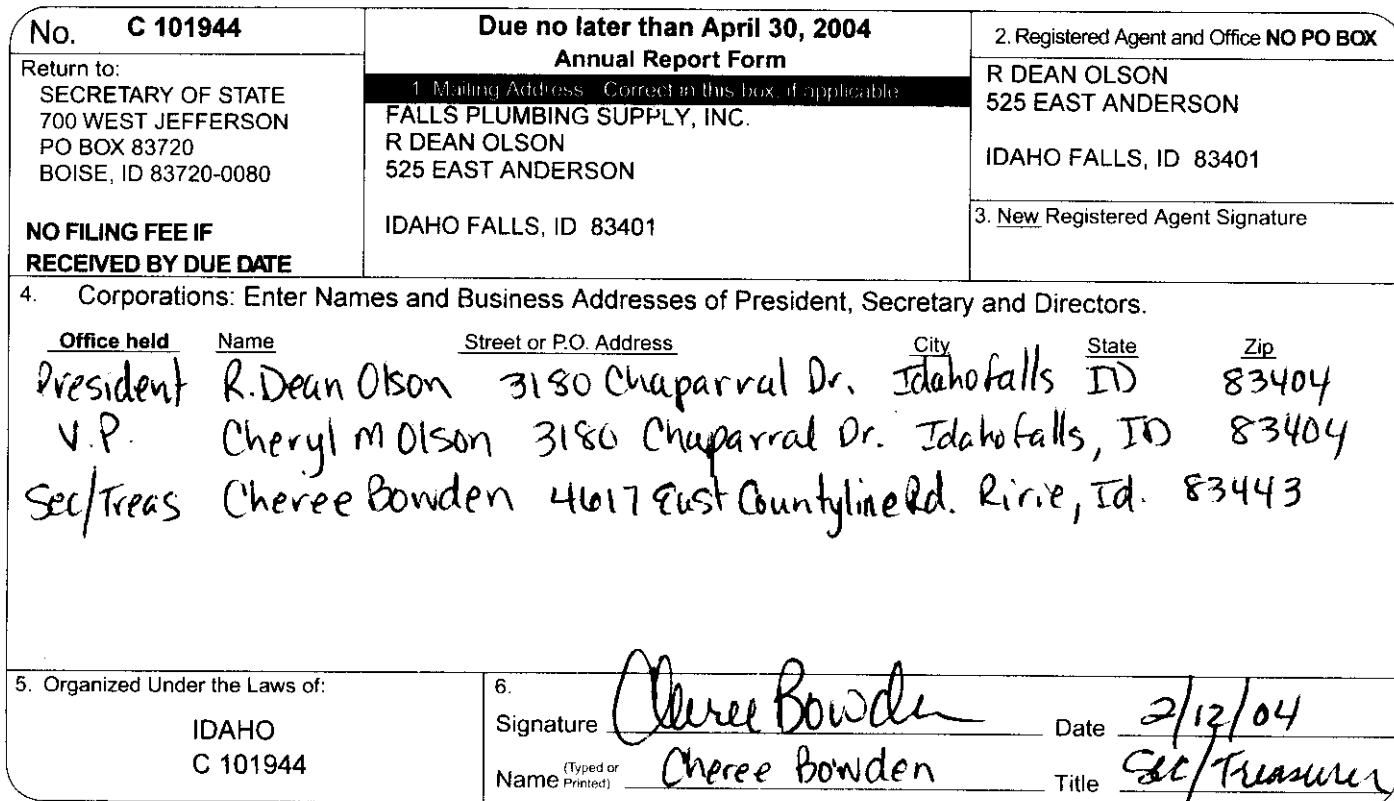 No. C 101944
Return to:
SECRETARY OF STATE
700 WEST JEFFERSON
PO BOX 83720
BOISE, ID 83720-0080
NO FILING FEE IF
RECEIVED BY DUE DATE
Due no later than April 30, 2004
Annual Report Form
1. Mailing Address Correct in this box, if applicable
FALLS PLUMBING SUPPLY, INC.
R DEAN OLSON
525 EAST ANDERSON
IDAHO FALLS, ID 83401
2. Registered Agent and Office NO PO BOX
R DEAN OLSON
525 EAST ANDERSON
IDAHO FALLS, ID 83401
3. New Registered Agent Signature
4. Corporations: Enter Names and Business Addresses of President, Secretary and Directors.
Office held Name Street or P.O. Address City State Zip
President R. Dean Olson 3180 Chaparral Dr. Idaho Falls ID 83404
V.P. Cheryl M Olson 3180 Chaparral Dr. Idaho Falls, ID 83404
Sec/Treas Cheree Bowden 4617 East Countyline Rd. Ririe, Id. 83443
5. Organized Under the Laws of:
IDAHO
C 101944
6.
Signature Cheree Bowden Date 2/12/04
Name (Typed or Printed) Cheree Bowden Title Sec/Treasurer